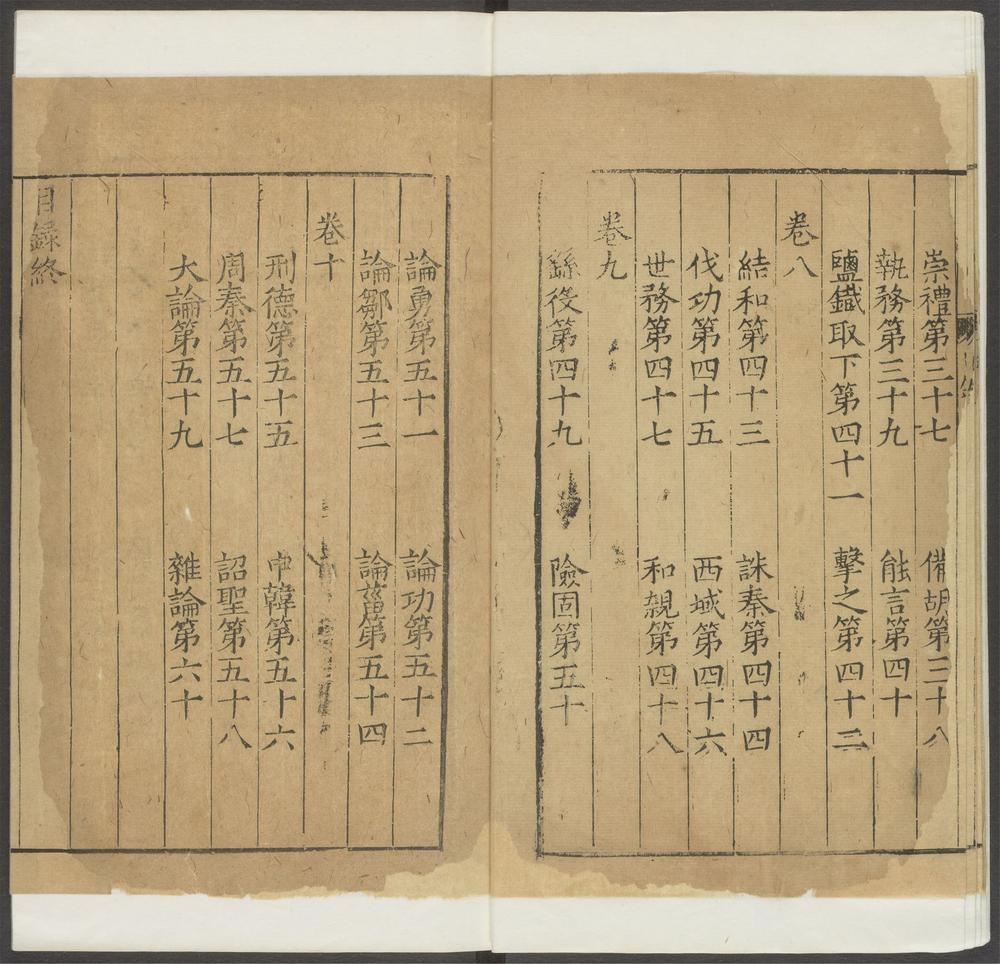 崇禮第三十七 備胡第三十八
執務第三十九 能言第四十
鹽鐵取下第四十一 擊之第四十二
卷八
結和第四十三 誅秦第四十四
伐功第四十五 西域第四十六
世務第四十七 和親第四十八
卷九
繇役第四十九 險固第五十
論勇第五十一 論功第五十二
論鄒第五十三 論菑第五十四
卷十
刑德第五十五 申韓第五十六
周秦第五十七 詔聖第五十八
大論第五十九 雜論第六十
目録終